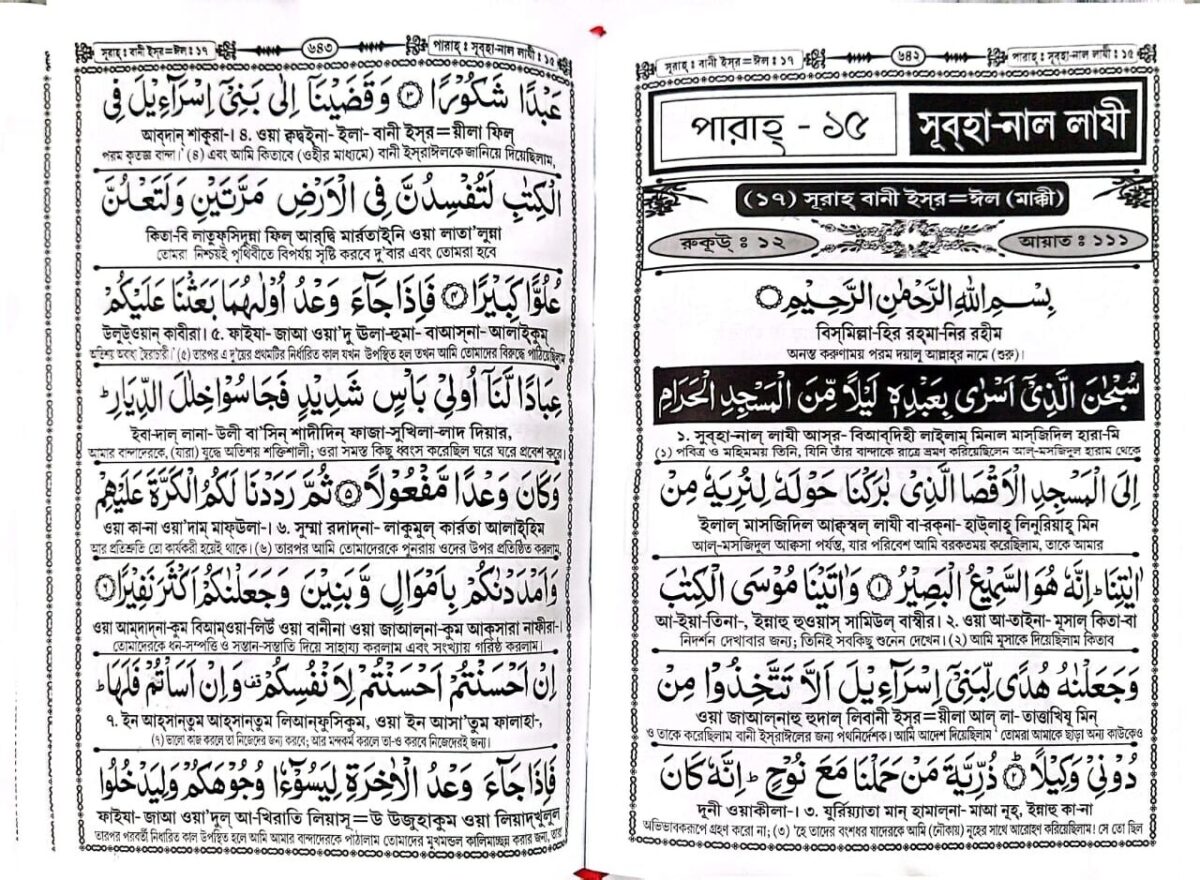 সূরাহ্ ঃ বানী ইসর=ঈল ঃ ১৭
৬৪২
পারাহ্ ঃ সুব্হা-নাল লাযী ঃ ১৫
পারাহ্ - ১৫
সুব্হা-নাল লাযী
(১৭) সূরাহ্ বানী ইসর=ঈল (মাক্কী)
রুকূউ্ ঃ ১২
আয়াত ঃ ১১১
بِسْمِ اللهِ الرَّحْمٰنِ الرَّحِيْمِ
বিস্মিল্লা-হির রহ্মা-নির রহীম
অনন্ত করুণাময় পরম দয়ালু আল্লাহ্র নামে (শুরু)।
سُبْحٰنَ الَّذِيْٓ اَسْرٰى بِعَبْدِهٖ لَيْلًا مِّنَ الْمَسْجِدِ الْحَرَامِ
১. সুব্হা-নাল্ লাযী আস্র- বিআব্দিহী লাইলাম্ মিনাল মাস্জিদিল হারা-মি
(১) পবিত্র ও মহিমময় তিনি, যিনি তাঁর বান্দাকে রাত্রে ভ্রমণ করিয়েছিলেন আল্-মসজিদুল হারাম থেকে
اِلَى الْمَسْجِدِ الْاَقْصَا الَّذِيْ بٰرَكْنَا حَوْلَهٗ لِنُرِيَهٗ مِنْ
ইলাল্ মাসজিদিল আক্বস্বল্ লাযী বা-রক্না- হাউলাহূ লিনুরিয়াহূ মিন্
আল্-মসজিদুল আক্বসা পর্যন্ত, যার পরিবেশ আমি বরকতময় করেছিলাম, তাকে আমার
اٰيٰتِنَا ؕ اِنَّهٗ هُوَ السَّمِيْعُ الْبَصِيْرُ ۝۱ وَاٰتَيْنَا مُوْسَى الْكِتٰبَ
আ-ইয়া-তিনা-, ইন্নাহূ হুওয়াস্ সামিউল্ বাস্বীর। ২. ওয়া আ-তাইনা- মূসাল্ কিতা-বা
নিদর্শন দেখাবার জন্য; তিনিই সবকিছু শুনেন দেখেন। (২) আমি মূসাকে দিয়েছিলাম কিতাব
وَجَعَلْنٰهُ هُدًى لِّبَنِيْٓ اِسْرَآءِيْلَ اَلَّا تَتَّخِذُوْا مِنْ
ওয়া জাআল্নাহু হুদাল্ লিবানী ইসর=য়ীলা আল্ লা- তাত্তাখিযূ মিন্
ও তাকে করেছিলাম বানী ইসরাঈলের জন্য পথনির্দেশক। আমি আদেশ দিয়েছিলাম তোমরা আমাকে ছাড়া অন্য কাউকেও
دُوْنِيْ وَكِيْلًا ۝۲ ذُرِّيَّةَ مَنْ حَمَلْنَا مَعَ نُوْحٍ ؕ اِنَّهٗ كَانَ
দূনী ওয়াকীলা-। ৩. যুর্রিয়্যাতা মান্ হামাল্না- মাআ নূহ্, ইন্নাহূ কা-না
অভিভাবকরূপে গ্রহণ করো না; (৩) 'হে তাদের বংশধর যাদেরকে আমি (নৌকায়) নূহের সাথে আরোহণ করিয়েছিলাম! সে তো ছিল
সূরাহ্ ঃ বানী ইসর=ঈল ঃ ১৭
৬৪৩
পারাহ্ ঃ সুব্হা-নাল লাযী ঃ ১৫
عَبْدًا شَكُوْرًا ۝۳ وَقَضَيْنَآ اِلٰى بَنِيْٓ اِسْرَآءِيْلَ فِى
আব্দান্ শাকূরা-। ৪. ওয়া ক্বদ্বইনা- ইলা- বানী ইসর=য়ীলা ফিল্
পরম কৃতজ্ঞ বান্দা।' (৪) এবং আমি কিতাবে (ওহীর মাধ্যমে) বানী ইসরাঈলকে জানিয়ে দিয়েছিলাম,
الْكِتٰبِ لَتُفْسِدُنَّ فِى الْاَرْضِ مَرَّتَيْنِ وَلَتَعْلُنَّ
কিতা-বি লাতুফ্সিদুন্না ফিল্ আর্দ্বি মার্রতাইনি ওয়া লাতা'লুন্না
তোমরা নিশ্চয়ই পৃথিবীতে বিপর্যয় সৃষ্টি করবে দু'বার এবং তোমরা হবে
عُلُوًّا كَبِيْرًا ۝۴ فَاِذَا جَآءَ وَعْدُ اُوْلٰىهُمَا بَعَثْنَا عَلَيْكُمْ
উলূউওয়ান কাবীরা। ৫. ফাইযা- জাআ ওয়া'দু ঊলা-হুমা- বাআস্না- আলাইকুম্
অতিশয় অবাধ্য স্বৈরাচারী।' (৫) তারপর এ দু'য়ের প্রথমটির নির্ধারিত কাল যখন উপস্থিত হল তখন আমি তোমাদের বিরুদ্ধে পাঠিয়েছিলাম
عِبَادًا لَّنَآ اُولِيْ بَاْسٍ شَدِيْدٍ فَجَاسُوْا خِلٰلَ الدِّيَارِ ؕ
ইবা-দাল্ লানা- উলী বা'সিন্ শাদীদিন্ ফাজা-সূ খিলা-লাদ্ দিয়ার,
আমার বান্দাদেরকে, (যারা) যুদ্ধে অতিশয় শক্তিশালী; ওরা সমস্ত কিছু ধ্বংস করেছিল ঘরে ঘরে প্রবেশ করে।
وَكَانَ وَعْدًا مَّفْعُوْلًا ۝۵ ثُمَّ رَدَدْنَا لَكُمُ الْكَرَّةَ عَلَيْهِمْ
ওয়া কা-না ওয়া'দাম্ মাফ্ঊলা-। ৬. সুম্মা রদাদ্না- লাকুমুল্ কার্রতা আলাইহিম
আর প্রতিশ্রুতি তো কার্যকরী হয়েই থাকে। (৬) তারপর আমি তোমাদেরকে পুনরায় ওদের উপর প্রতিষ্ঠিত করলাম,
وَاَمْدَدْنٰكُمْ بِاَمْوَالٍ وَّبَنِيْنَ وَجَعَلْنٰكُمْ اَكْثَرَ نَفِيْرًا ۝۶
ওয়া আম্দাদ্না-কুম বিআম্ওয়া-লিউঁ ওয়া বানীনা ওয়া জাআল্না-কুম আক্সারা নাফীরা-।
তোমাদেরকে ধন-সম্পত্তি ও সন্তান-সন্ততি দিয়ে সাহায্য করলাম এবং সংখ্যায় গরিষ্ঠ করলাম।
اِنْ اَحْسَنْتُمْ اَحْسَنْتُمْ لِاَنْفُسِكُمْ قف وَاِنْ اَسَاْتُمْ فَلَهَا ؕ
৭. ইন আহ্সান্তুম আহ্সান্তুম লিআন্ফুসিকুম, ওয়া ইন আসা'তুম ফালাহা-,
(৭) ভালো কাজ করলে তা নিজেদের জন্য করবে; আর মন্দকর্ম করলে তা-ও করবে নিজেদেরই জন্য।
فَاِذَا جَآءَ وَعْدُ الْاٰخِرَةِ لِيَسُوْٓءٗا وُجُوْهَكُمْ وَلِيَدْخُلُوا
ফাইযা- জাআ ওয়া'দুল্ আ-খিরাতি লিয়াসূ=ঊ উজুহাকুম ওয়া লিয়াদ্খুলুল
তারপর পরবর্তী নির্ধারিত কাল উপস্থিত হলে আমি আমার বান্দাদেরকে পাঠালাম তোমাদের মুখমন্ডল কালিমাচ্ছন্ন করার জন্য, তারা